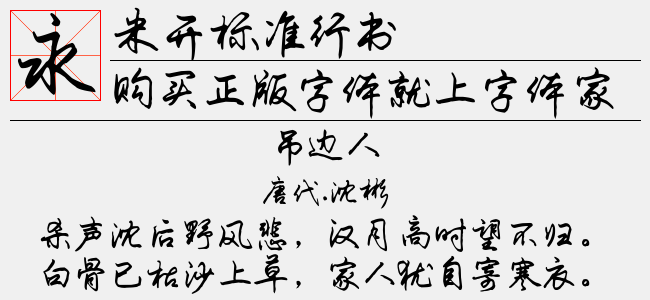 永
米开标准行书
购买正版字体就上字体家
吊边人
唐代.沈彬
杀声沈后野风悲，汉月高时望不归。
白骨已枯沙上草，家人犹自寄寒衣。